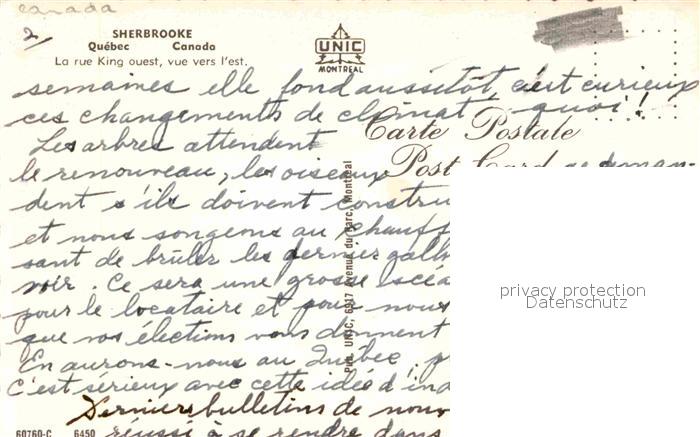 canada
2/
SHERBROOKE
Québec Canada
La rue King ouest, vue vers l'est.
UNIC
MONTREAL
semaines elle fond aussitôt, c'est curieux
ces changements de climat, quoi!
Carte Postale
Les arbres attendent
Post Card
le renouveau, les oiseaux se deman-
dent s'ils doivent constru
et nous songeons au chauff
sant de brûler les dernier
voir. Ce sera une grosse
pour le locataire et pour nous
que vos élections vous donnent
En aurons-nous au Québec,
C'est sérieux avec cette idée d'ind
Derniers bulletins de nouv
réussi à se rendre dans
60760-C 6450
Pub. UNIC, 6937 Avenue du Parc, Montréal
privacy protection
Datenschutz